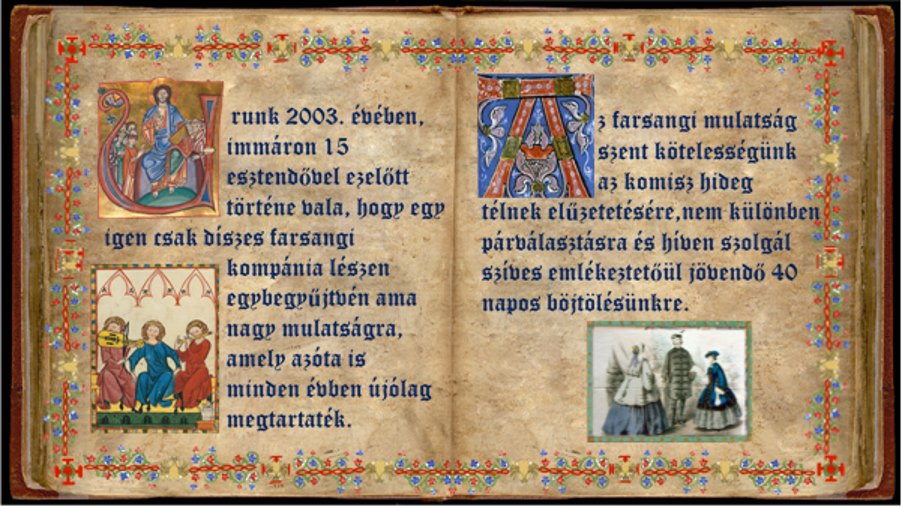 Urunk 2003. évében,
immáron 15
esztendővel ezelőtt
történe vala, hogy egy
igen csak díszes farsangi
kompánia lészen
egybegyűjtvén ama
nagy mulatságra,
amely azóta is
minden évben újólag
megtartaték.
Az farsangi mulatság
szent kötelességünk
az komisz hideg
télnek elűzetetésére,nem különben
párválasztásra és híven szolgál
szíves emlékeztetőül jövendő 40
napos böjtölésünkre.